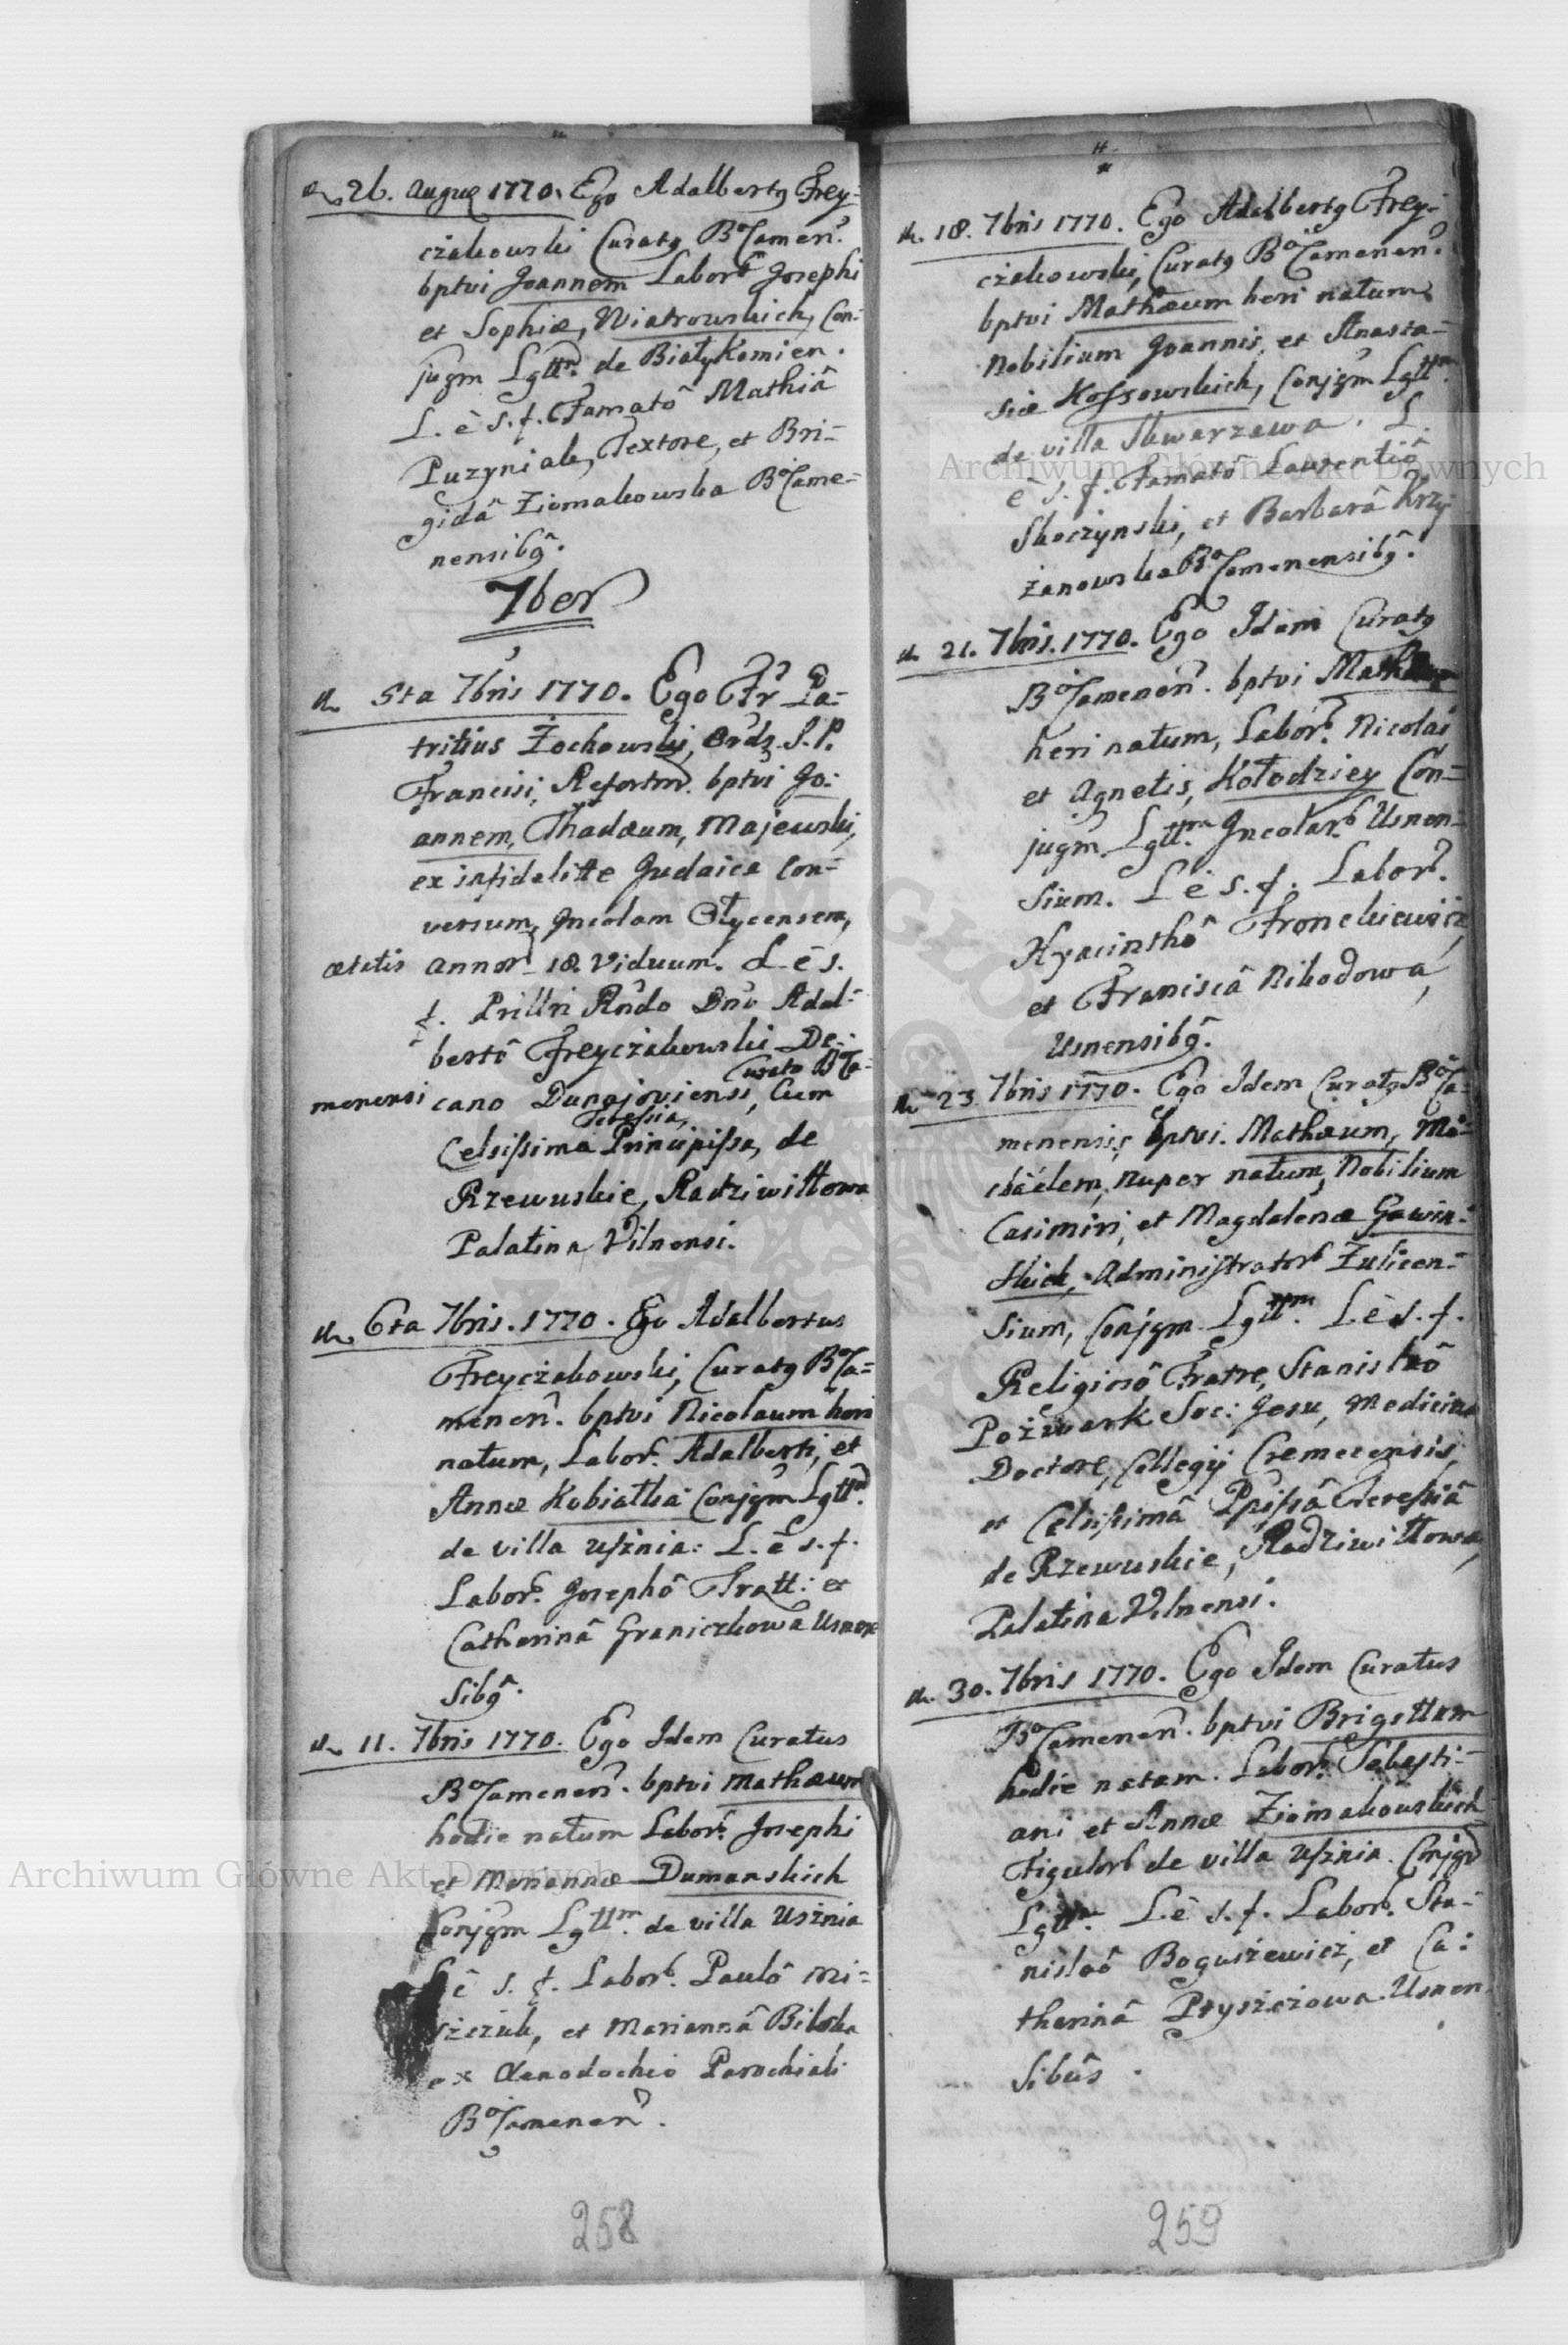 26. Augus 1770. Ego Adalbertg Frey-
czakowski Curatg BoCamen.
bptvi Joannem Labor. Josephi
et Sophiæ, Wiatrowskich, Con-
jugm Lgttm. de BiałyKamien.
L. è s. f. Famatô Mathiâ
Puzyniak, Textore, et Bri-
gidâ Ziomakowska BoCame-
nensibg.
7ber
5ta 7bris 1770. Ego Fr Pa-
tritius Żochowski, Ordg. S. P.
Francisi, Refortm. bptvi Jo-
annem, Thadæum, Majewski,
ex infidelitte Judaica Con-
versum, Incolam Ołycensem,
ætatis annor. 18. Viduum. L è s.
f. Prillri Rndo Dno Adal-
bertô Freyczakowski De-
Curato BoCa-
menensi cano Dunajoviensi, Cum
Teressia,
Celsissima Principissa, de
Rzewuskie, Radziwiłłowa
Palatina Vilnensi.
6ta 7bris. 1770. Ego Adalbertus
Freyczakowski, Curatg BoCa-
menen. bptvi Nicolaum heri
natum, Labor. Adalberti, et
Annæ Kobiałka Conjgm Lgttm.
de villa Usznia: L. è s. f.
Labor. Josephô Tratt: et
Catharinâ Graniczkowa Usnen
sibg.
11. 7bris 1770. Ego Idem Curatus
BoCamenen. bptvi Mathæum
hodie natum Labor. Josephi
et Mariannæ Dumanskich
Conjgm Lgttm. de villa Usznia
L è s. f. Labor. Paulô Mi-
szczuk, et Mariannâ Bilska
ex Xenodochio Parochiali
BoCamenen.
258
18. 7bris 1770. Ego Adalbertg Frey-
czakowski, Curatg BoCamenen.
bptvi Mathæum heri natum
Nobilium Joannis, et Anasta-
siæ Kossowskich, Conjgm Lgttm.
de villa Skwarzawa. L.
è s. f. Famatô Laurentiô
Skoczynski, et Barbarâ Krzy
żanowska BoCamenensibg.
21. 7bris. 1770. Ego Idem Curatg
BoCamenen. bptvi
heri natum, Labor. Nicolai
et Agnetis, Kołodziey Con-
jugm. Lgttm. Incolar. Usnen-
sium. L è s. f. Labor.
Hyacinthô Fronckiewicz,
et Francisiâ Nibodowa,
Usnensibg.
23 7bris 1770. Ego Idem Curatg BoCa-
menensis, bptvi. Mathæum, Mi-
chaëlem, nuper natum, Nobilium
Casimiri, et Magdalenæ Gawin-
skich, Administrator. Żulicen-
sium, Conjgm Lgttm. L è s. f.
Religiosô Fratre, Stanislaô
Pożwark Soc: Jesu, Medicina
Doctore, Collegij Cremecensis,
et Celsissimâ Pssissâ Teressiâ
de Rzewuskie, Radziwiłłowa,
Palatina Vilnensi.
30. 7bris 1770. Ego Idem Curatus
BoCamenen. bptvi Brigittam
hodie natam. Labor. Sebasti-
ani et Annæ Ziomakowskich
Figulor. de villa Usznia. Conjgm
Lgttm. L è s. f. Labor. Sta-
nislaô Boguszewicz, et Ca-
tharinâ Ptyszczowa Usnen
sibus.
259
Archiwum Główne Akt Dawnych
Archiwum Główne Akt Dawnych